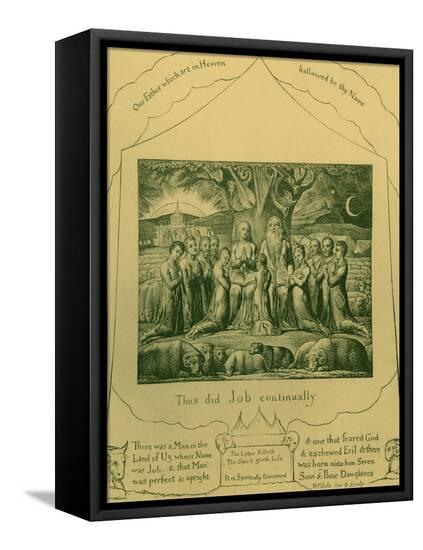 Our Father which art in Heaven
hallowed be thy Name
Thus did Job continually
There was a Man in the
Land of Uz whose Name
was Job. & that Man
was perfect & upright
The Letter Killeth
The Spirit giveth Life
It is Spiritually Discerned
& one that feared God
& eschewed Evil & there
was born unto him Seven
Sons & Three Daughters
WBlake inv & sculp